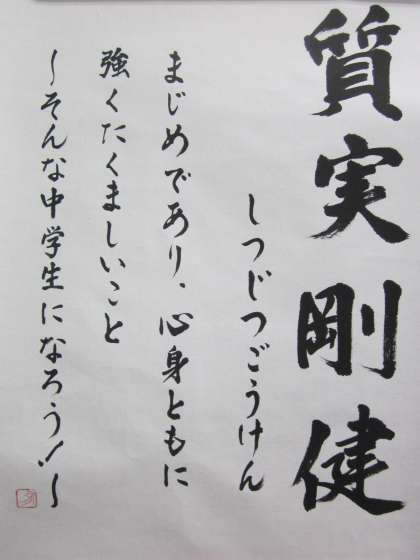 質実剛健
しつじつごうけん
まじめであり、心身ともに
強くたくましいこと
～そんな中学生になろう！～